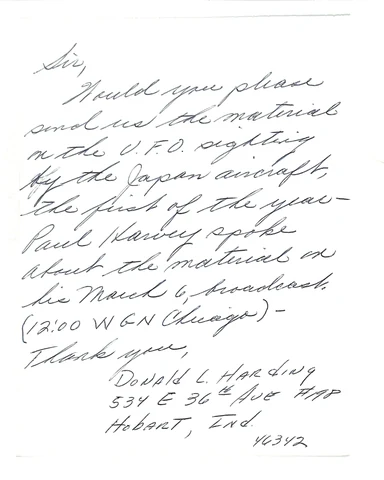 Sir,
Would you please
send us the material
on the U.F.O. sighting
by the Japan aircraft,
the first of the year—
Paul Harvey spoke
about the material on
his March 6, broadcast.
(12:00 WGN Chicago)—
Thank you,
Donald L. Harding
534 E 36th Ave #A98
Hobart, Ind.
46342